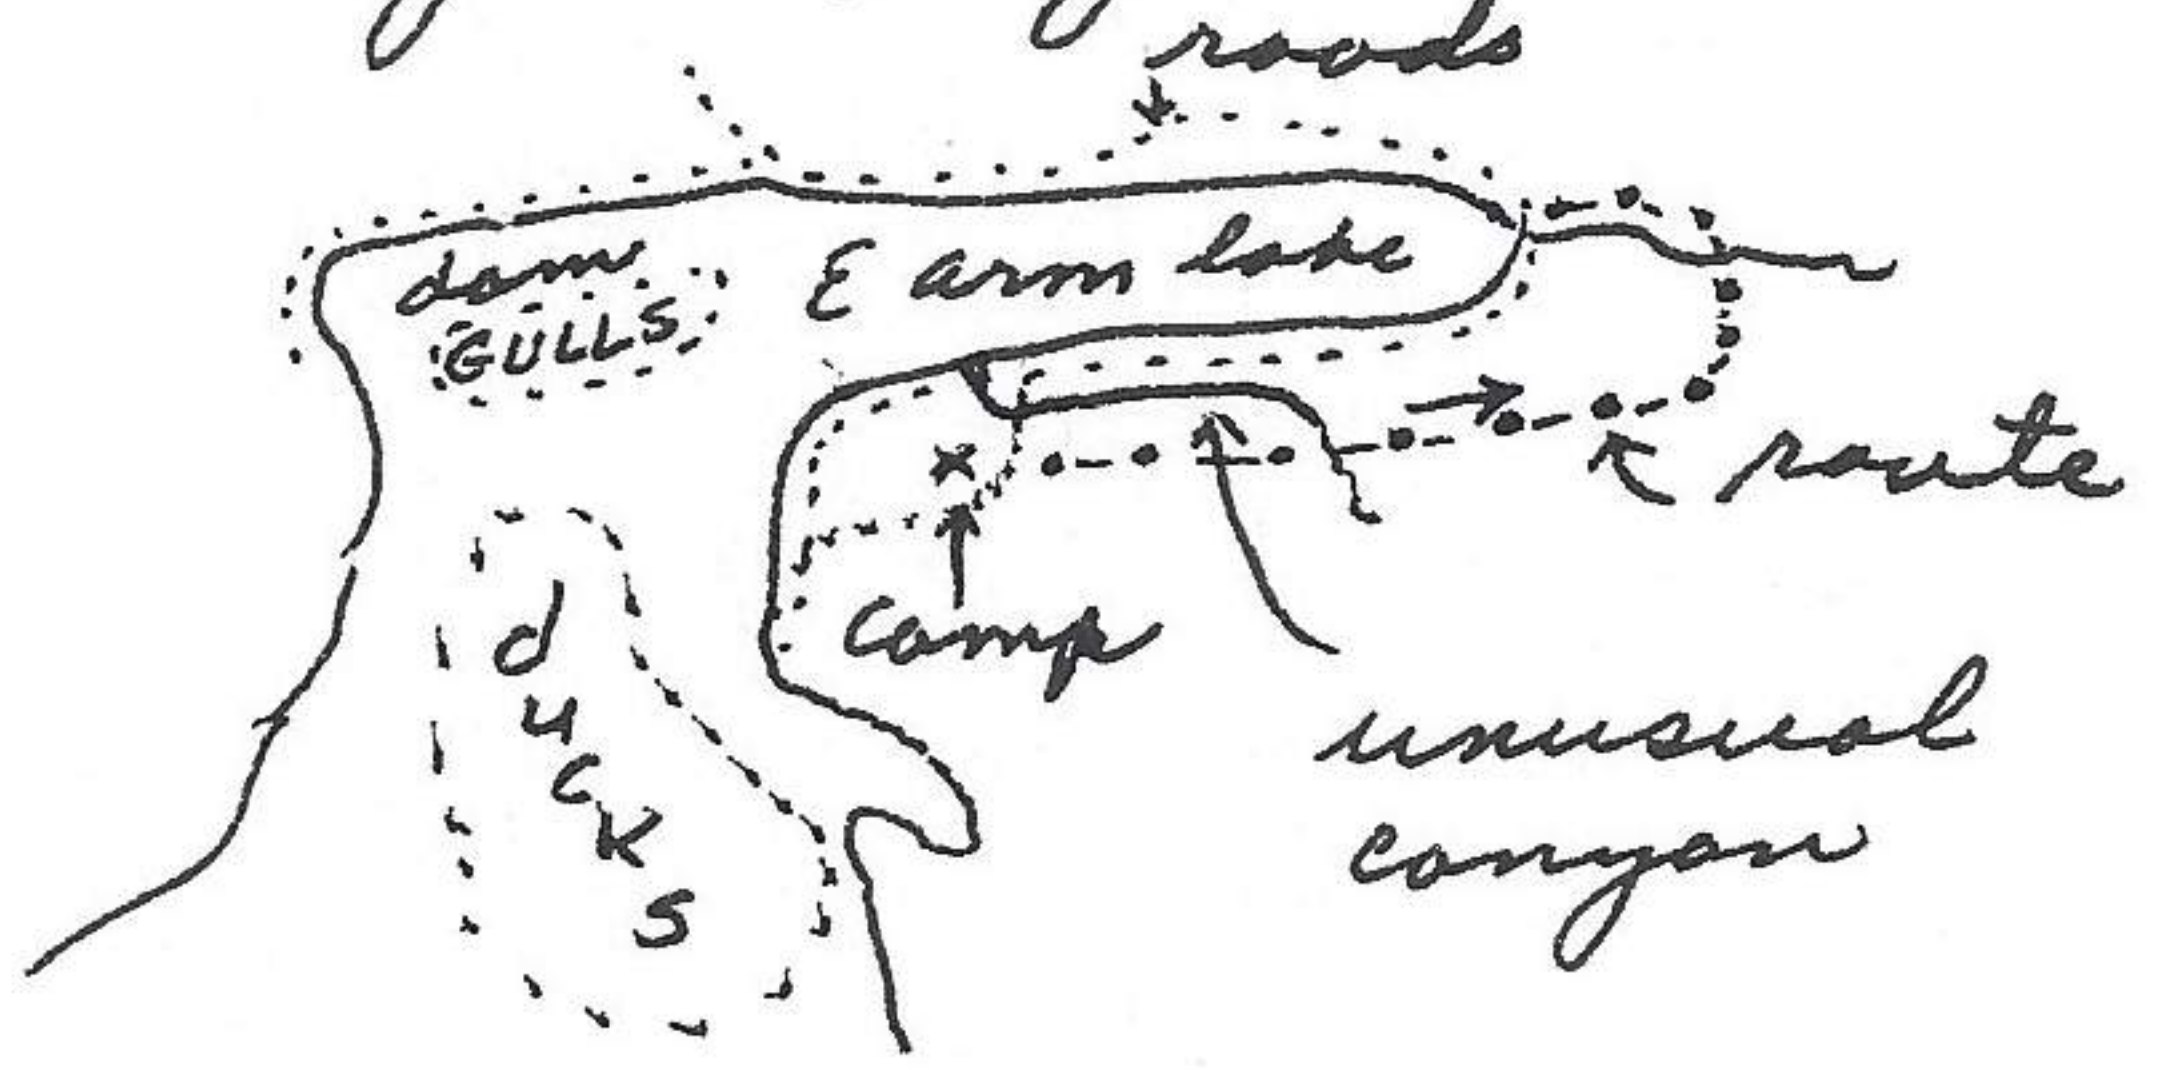 roads
dam
GULLS
E arm lake
route
camp
ducks
unusual
canyon